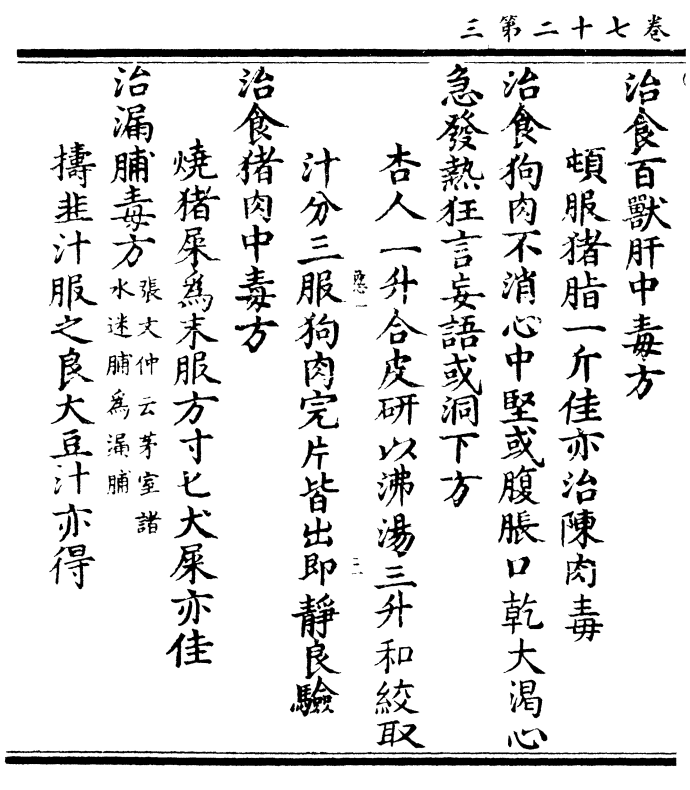 卷七十二第三
治食百獸肝中毒方
頓服猪脂一斤佳亦治陳肉毒
治食狗肉不消心中堅或腹脹口乾大渴心
急發熱狂言妄語或洞下方
杏人一升合皮研以沸湯三升和絞取
汁分三服狗肉完片皆出即靜良驗
治食猪肉中毒方
燒猪屎爲末服方寸匕犬屎亦佳
治漏脯毒方張文仲云茅室諸
水迷脯爲漏脯
擣韭汁服之良大豆汁亦得